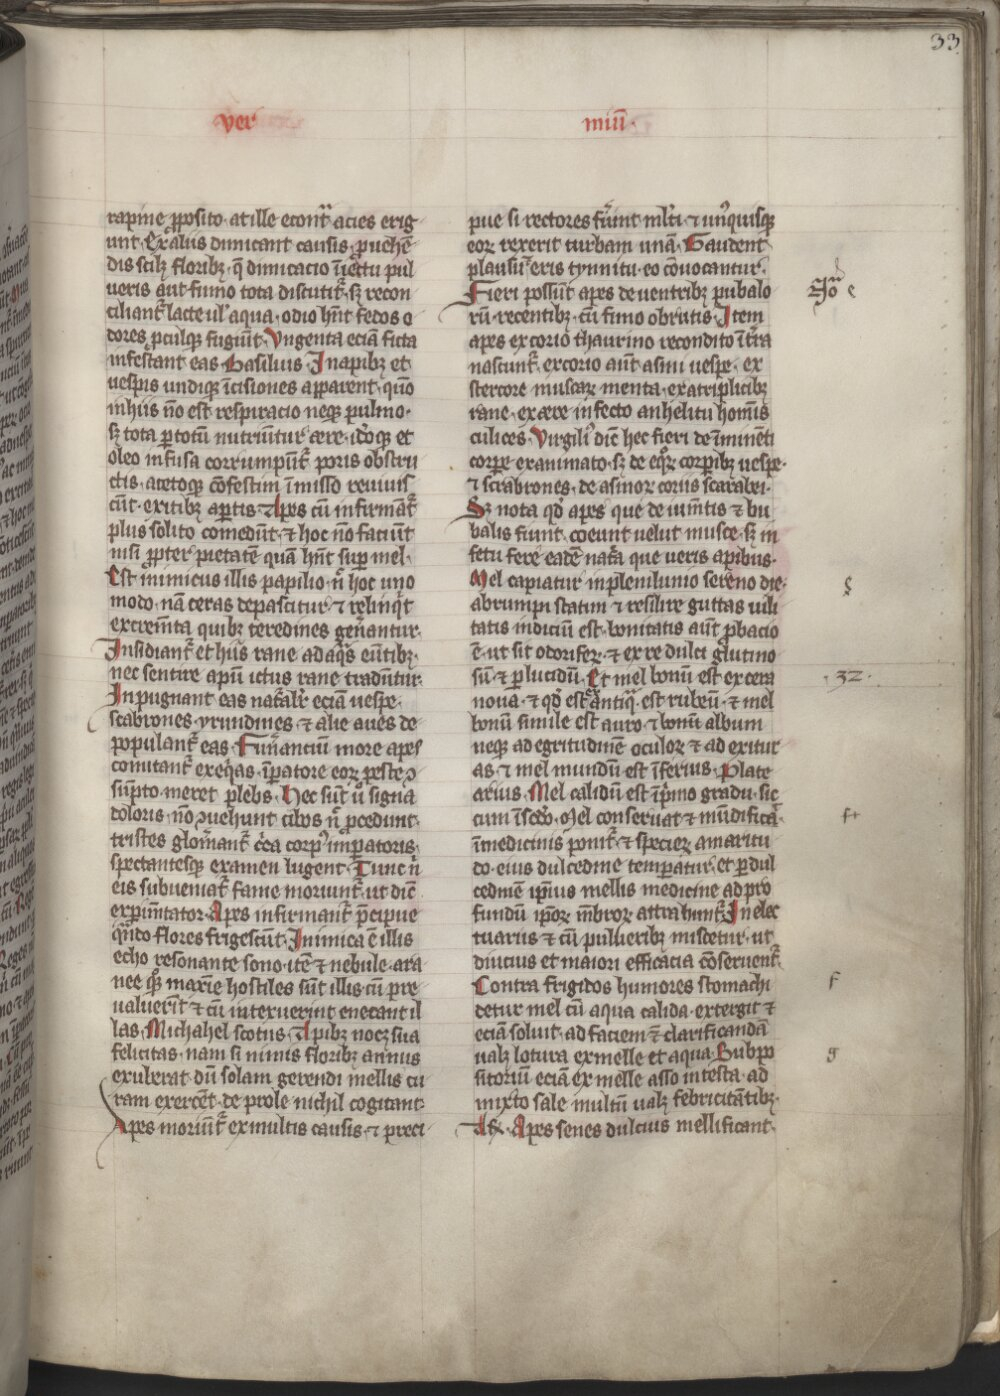 33
ver
miū
rapine p̱posito· at ille econt̃ acies erig
unt· Ex aliis dimicant causis· puehē
dis scilꝫ floribꝫ· q̄ dimicacio īiectu pul
ueris aut fumo tota discutit᷑· sꝫ recon
ciliant᷑ lacte ul' aqua· odio hn̄t fedos o
dores pculqꝫ fugiūt· Vngenta eciā ficta
infestant eas· Basilius· In apibꝫ et
uespis undiqꝫ īcisiones apparent· quō
in hiis nō est respiracio neqꝫ pulmo·
sꝫ tota p totū nutriūtur aere· idoqꝫ et
oleo infusa corrumpūt᷑ poris obstru
ctis· acetoqꝫ cōfestim īmisso reuiuis
cūt· exitibꝫ aptis· Apes cū infirmāt᷑
plus solito comedūt· ⁊ hoc nō faciūt
nisi ppter pietatē quā hn̄t sup mel·
Est inimicus illis papilio· n̄ hoc uno
modo· nā ceras depascitur· ⁊ relinqit
excrem̄ta quibꝫ teredines gen̄antur·
Insidiant᷑ et hiis rane ad aq̄s eūtibꝫ·
nec sentire apū ictus rane tradūtur·
Inpugnant eas nat᷑alr̄ eciā uespe·
scabrones· yrundines· ⁊ alie aues de
populant᷑ eas· Fun̄anciū more apes
comitant᷑ exeq̄as· īpatore eoꝝ peste ↄ
sūpto meret plebs· Hec sūt u̾ signa
doloris· nō ↄuehunt cibos n̄ pcedunt·
tristes glom̄ant᷑ cc̄a corp᷒ impatoris·
spectantesqꝫ examen lugent· Tunc n̄
eis subueniat᷑ fame moriunt᷑· ut dic̄
experim̄tator· Apes infirmant᷑ p̄cipue
qn̄do flores frigescūt· Inimica ē illis
echo resonante sono· itē ⁊ nebule· ara
nee q̊ꝫ maxīe hostiles sūt illis cū pre
ualuerīt ⁊ cū intexuerint enecant il
las· Michahel scotus· Apibꝫ nocꝫ sua
felicitas· nam si nimis floribꝫ annus
exuberat· dū solam gerendi mellis cu
ram exercēt· de prole nichil cogitant·
Apes moriūt᷑ ex multis causis· ⁊ preci
pue si rectores fūint ml̄ti· ⁊ un᷒quisqꝫ
eoꝝ rexerit turbam unā· Gaudent
plausu· eris tynnitu· eo cōuocantur·
Fieri possūt apes de uentribꝫ pubalo
rū· recentibꝫ· cū fimo obrutis· Item
apes ex corio thaurino recondito īt᷑ra
nascunt᷑· ex corio aūt asini uespe· ex
stercore muscaꝝ menta· ex atriplicibꝫ
rane· ex aere infecto anhelitu homīs
culices· Virgili᷒ dic̄ hec fieri de īminēti
corpe exanimato· sꝫ de eq̊ꝝ corpibꝫ uespe·
⁊ scrabrones· de asinoꝝ coriis scarabei·
Sꝫ nota qd̾ apes que de uim̄tis ⁊ bu
balis fiunt· coeunt uelut musce· sꝫ in
fetu fere eadē nat̄a que ueris apibus·
Mel capiatur in plenilunio sereno die·
abrumpi statim ⁊ resilire guttas uili
tatis indiciū est· bonitatis aūt p̱bacio
ē· ut sit odorifeꝝ· ⁊ ex re dulci glutino
sū· ⁊ plucidū· Et mel bonū est ex cera
noua· ⁊ qd̾ est antiq· est rubeū· ⁊ mel
bonū simile est auro ⁊ bonū album
neqꝫ ad egritudinē oculoꝝ ⁊ ad exitur
as· ⁊ mel mundū est īferius· Plate
arius· Mel calidū est ī p̄mo gradu· sic
cum ī scd̄o· Mel conseruat ⁊ mūdificat᷑·
ī medicinis ponit᷑· ⁊ specieꝝ amaritu
do· eius dulcedine temperatur· et p dul
cedinē ipsius mellis medicine ad pro
fundū ipoꝝ mēbroꝝ attrahunt᷑· In elec
tuariis ⁊ cū puluеribꝫ miscetur· ut
diucius et maiori efficacia cōseruent᷑·
Contra frigidos humores stomachi
detur mel cū aqua calida· extergit ⁊
eciā soluit· ad faciem ⁊ clarificandā
ualꝫ lotura ex melle et aqua· Subpo
sitoriū eciā ex melle asso in testa· ad
mixto sale multū ualꝫ febricitātibꝫ·
Apes senes dulcius mellificant·
32
f
g